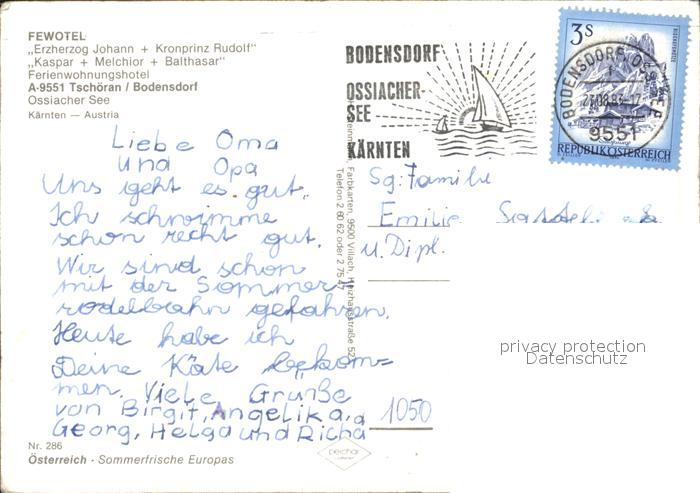 FEWOTEL
„Erzherzog Johann + Kronprinz Rudolf"
„Kaspar + Melchior + Balthasar"
Ferienwohnungshotel
A-9551 Tschöran / Bodensdorf
Ossiacher See
Kärnten — Austria
Liebe Oma
und Opa
Uns geht es gut.
Ich schwimme
schon recht gut.
Wir sind schon
mit der Sommer-
rodelbahn gefahren.
Heute habe ich
Deine Käte bekom=
men. Viele Grüße
von Birgit, Angelika,
Georg, Helga und Richa
Nr. 286
Österreich - Sommerfrische Europas
BODENSDORF
OSSIACHER-
SEE
KÄRNTEN
3S
BODENSDORF
9551
REPUBLIK ÖSTERREICH
Farbkarten, 9500 Villach,
Telefon 2 80 62 oder 2 75
Sg. Familie
Emilie
u. Dipl.
1050
privacy protection
Datenschutz